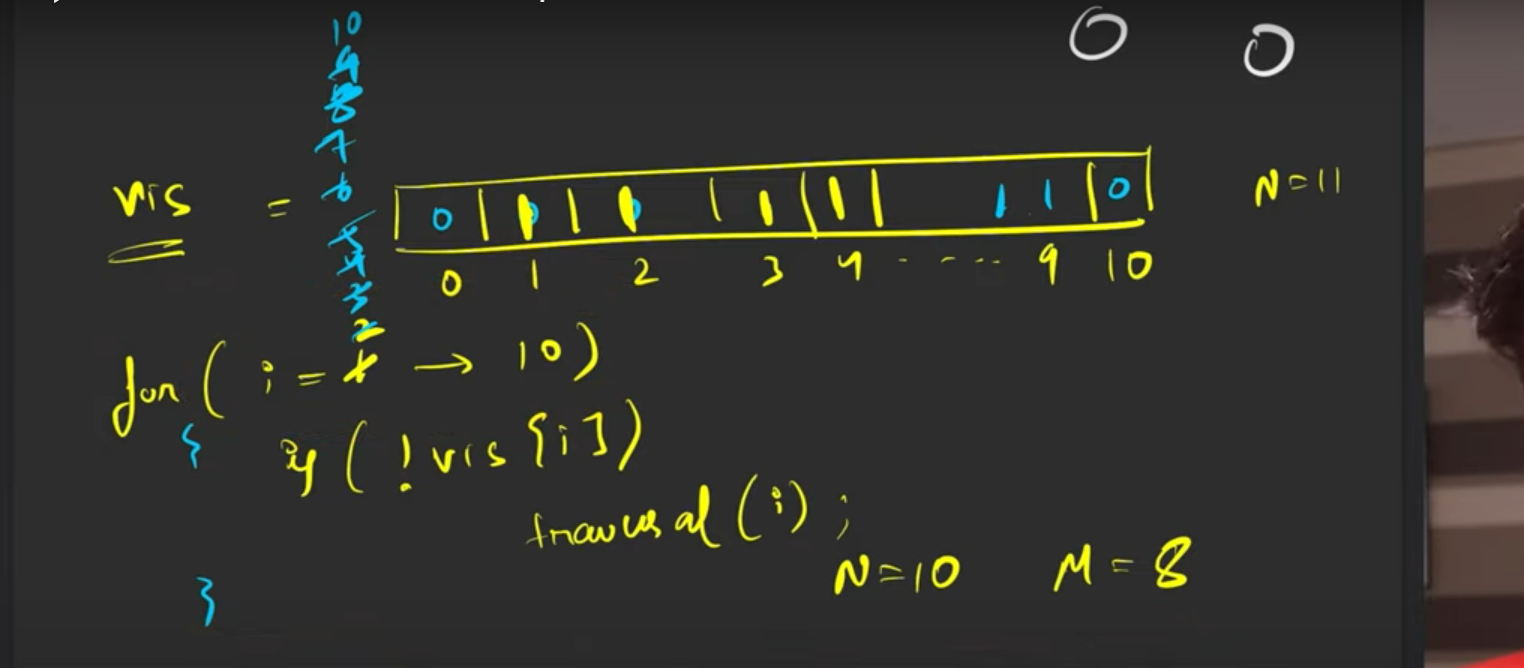 10
9
8
7
6
5
4
3
2
0 0
vis = 0 1 1 1 1 1 1 0 N=11
0 1 2 3 4 - - - - 9 10
for ( i = 1 → 10)
{ if ( ! vis [i])
traversal (i) ;
N=10 M=8
}